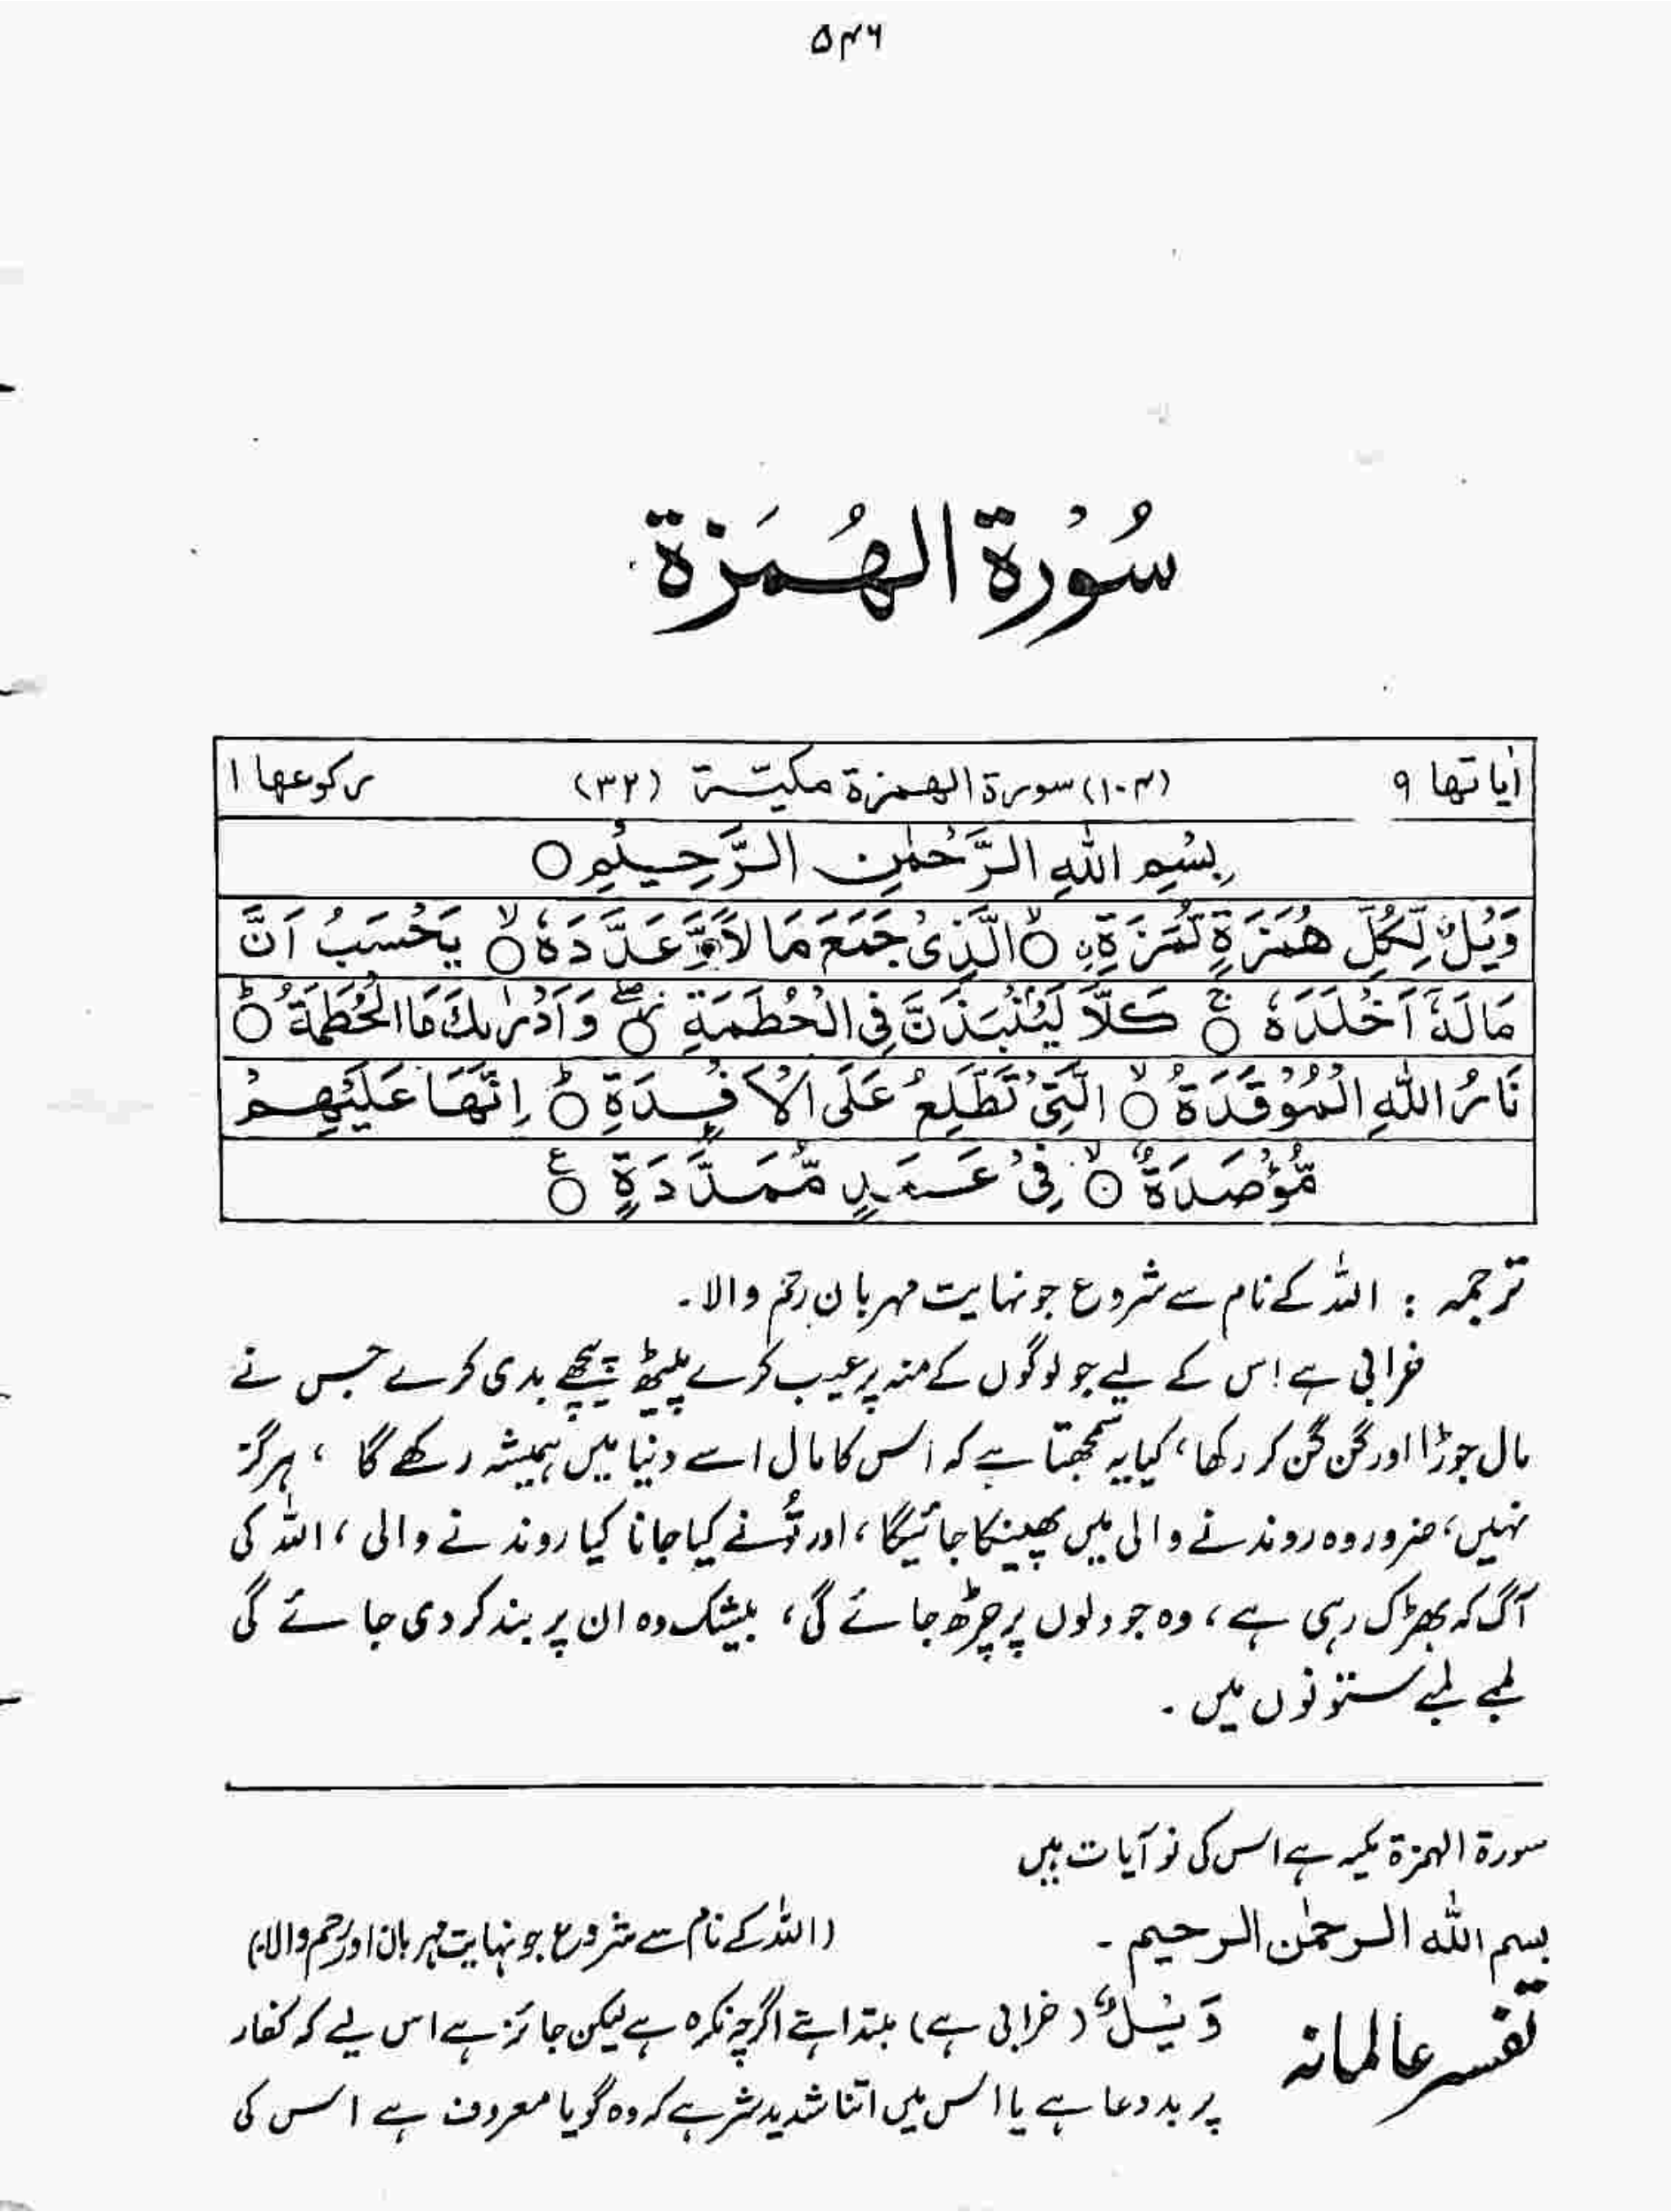 ۵۴۶
سُوْرۃ الھُمَزۃ
اٰیاتھا ۹ (۱۰۴) سورۃ الھمزۃ مکیّۃ (۳۲) رکوعھا ۱
بِسْمِ اللّٰہِ الرَّحْمٰنِ الرَّحِیْمِ ○
وَیْلٌ لِّکُلِّ ھُمَزَۃٍ لُّمَزَۃِۣ ○ۙ الَّذِیْ جَمَعَ مَا لًا وَّعَدَّدَہٗ ○ۙ یَحْسَبُ اَنَّ
مَا لَہٗٓ اَخْلَدَہٗ ○ۚ کَلَّا لَیُنْۢبَذَنَّ فِی الْحُطَمَۃِ ○ۖ وَ اَدْرٰىکَ مَا الْحُطَمَۃُ ○ؕ
نَارُ اللّٰہِ الْمُوْقَدَۃُ ○ۙ الَّتِیْ تَطَّلِعُ عَلَی الْاَفْـِٕدَۃِ ○ؕ اِنَّھَا عَلَیْھِمْ
مُّؤْصَدَۃٌ ○ۙ فِیْ عَمَدٍ مُّمَدَّدَۃٍ ○ع
ترجمہ : اللہ کے نام سے شروع جو نہایت مہربان رحم والا۔
خرابی ہے اس کے لیے جو لوگوں کے منہ پر عیب کرے پیٹھ پیچھے بدی کرے جس نے
مال جوڑا اور گن گن کر رکھا، کیا یہ سمجھتا ہے کہ اس کا مال اسے دنیا میں ہمیشہ رکھے گا ، ہرگز
نہیں، ضرور وہ روندنے والی میں پھینکا جائیگا، اور تُو نے کیا جانا کیا روندنے والی ، اللہ کی
آگ کہ بھڑک رہی ہے ، وہ جو دلوں پر چڑھ جائے گی، بیشک وہ ان پر بند کر دی جائے گی
لمبے لمبے ستونوں میں ۔
سورۃ الہمزۃ مکیہ ہے اس کی نو آیات ہیں
بسم اللہ الرحمٰن الرحیم ۔ (اللہ کے نام سے شروع جو نہایت مہربان اور رحم والا ہے)
تفسیر عالمانہ وَیْلٌ (خرابی ہے) مبتدا ہے اگرچہ نکرہ ہے لیکن جائز ہے اس لیے کہ کفار
پر بد دعا ہے یا اس میں اتنا شدید شر ہے کہ وہ گویا معروف ہے اس کی